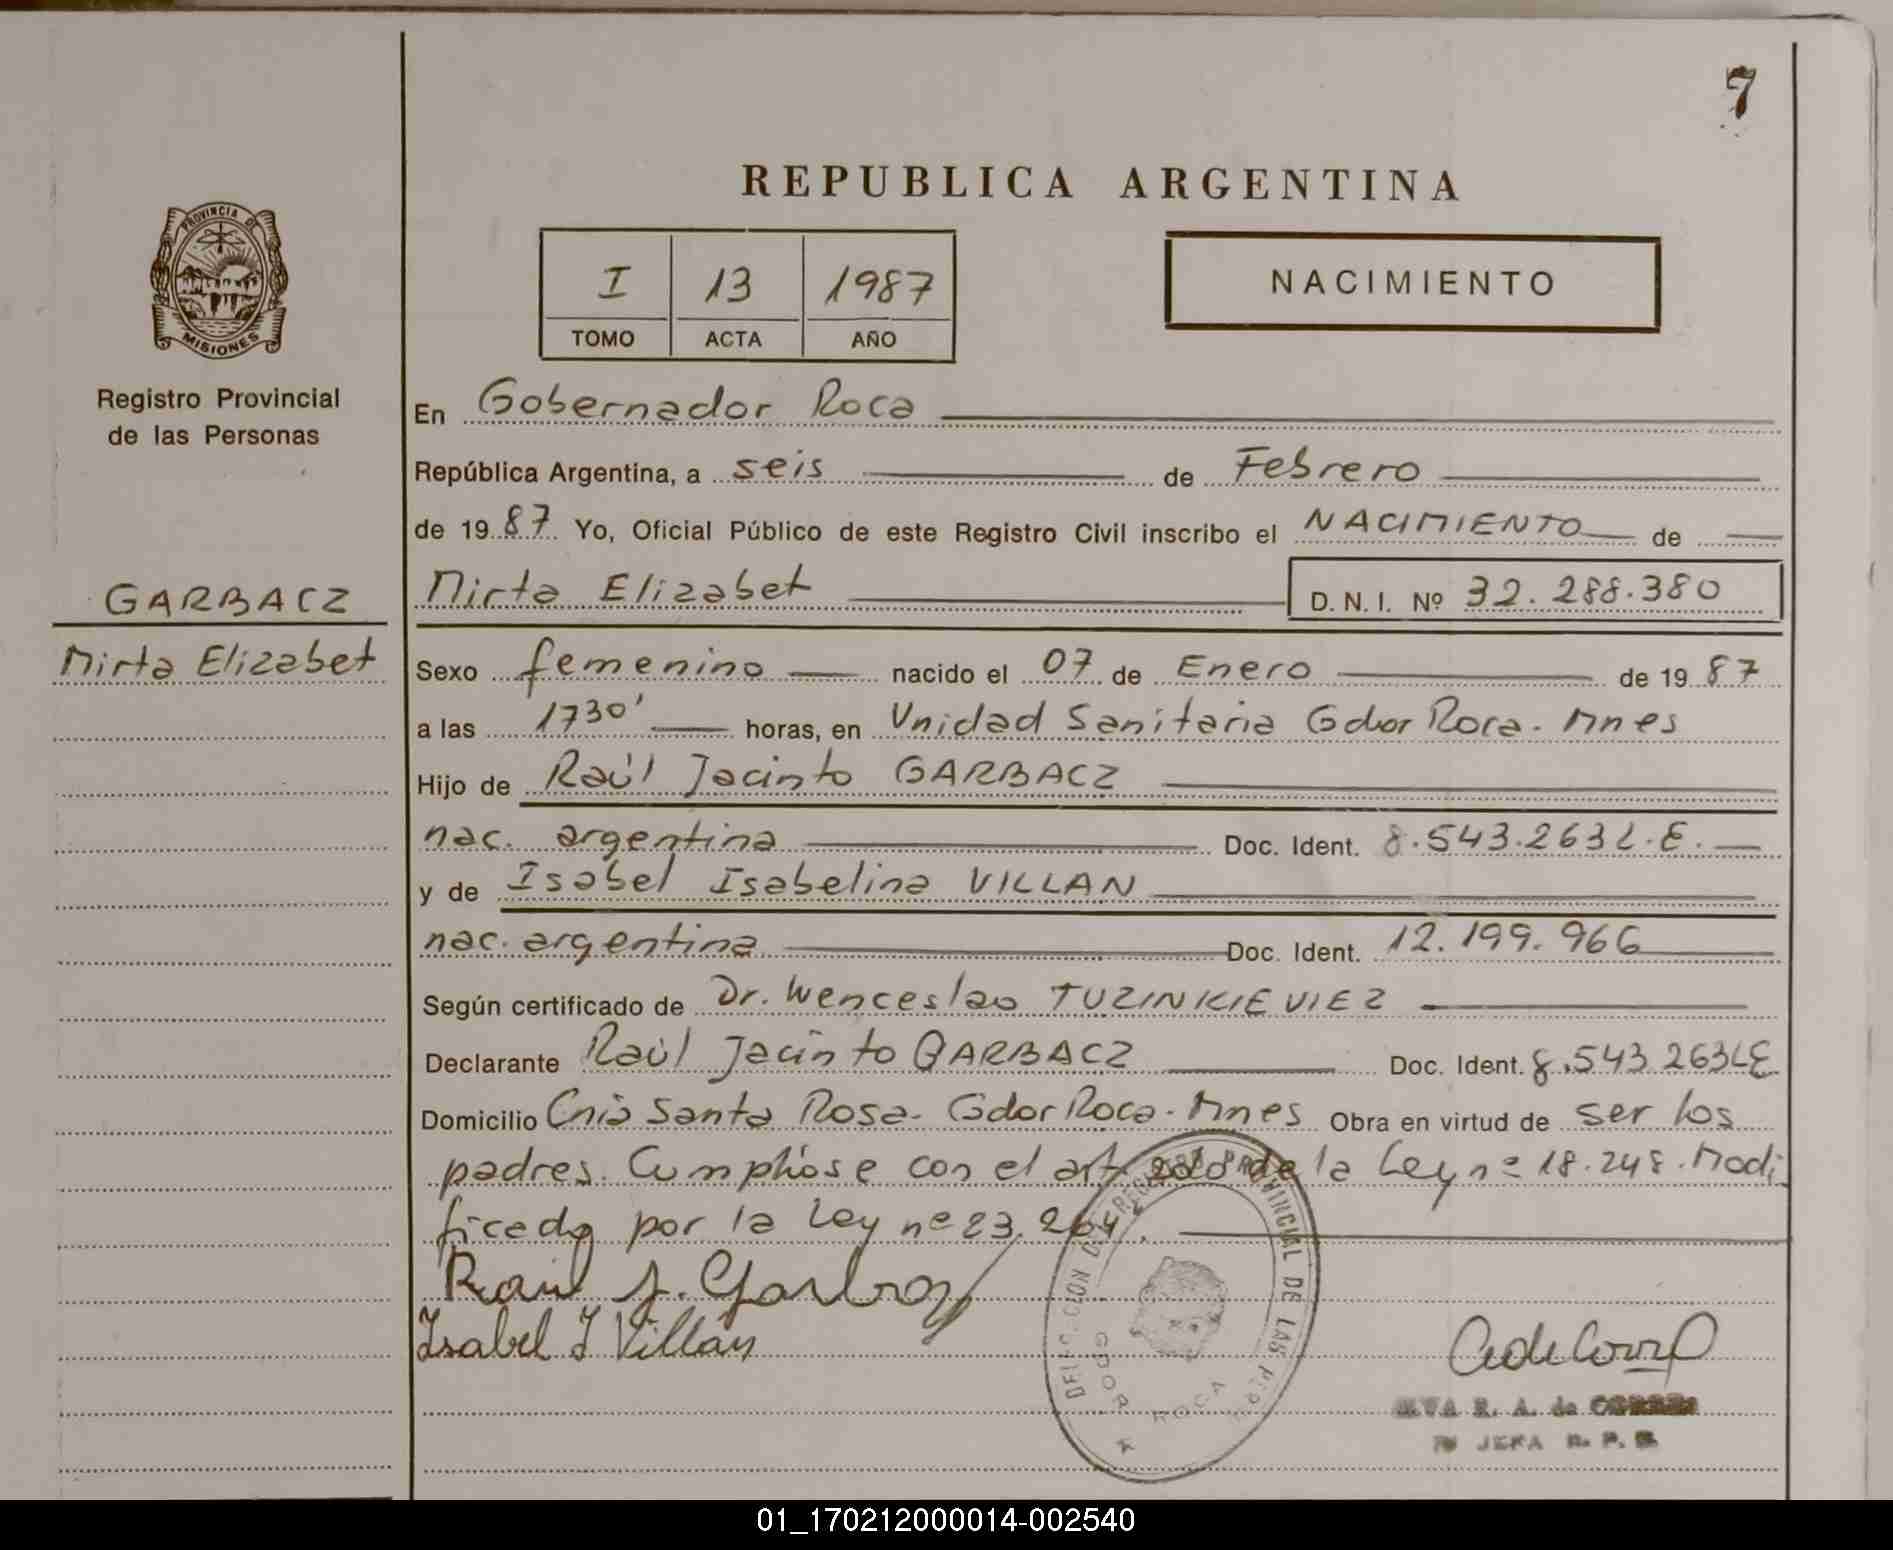 7
REPUBLICA ARGENTINA
PROVINCIA DE
MISIONES
Registro Provincial
de las Personas
I 13 1987
TOMO ACTA AÑO
NACIMIENTO
En Gobernador Roca
República Argentina, a seis de Febrero
de 1987 Yo, Oficial Público de este Registro Civil inscribo el NACIMIENTO de
GARBACZ
Mirta Elizabet
Mirta Elizabet D. N. I. Nº 32.288.380
Sexo femenino nacido el 07 de Enero de 1987
a las 1730' horas, en Unidad Sanitaria Gdor Roca. Mnes
Hijo de Raúl Jacinto GARBACZ
nac. argentina Doc. Ident. 8.543.263 L.E.
y de Isabel Isabelina VILLAN
nac. argentina Doc. Ident. 12.199.966
Según certificado de Dr. Wenceslao TUZINKIEVIEZ
Declarante Raúl Jacinto GARBACZ Doc. Ident. 8.543.263 LE
Domicilio Cnia Santa Rosa. Gdor Roca. Mnes Obra en virtud de ser los
padres. Cumplióse con el art 2do de la Ley nº 18.248. Modi
ficada por la Ley nº 23.264.
Raúl J. Garbacz
Isabel I Villan
DELEGACION DEL REGISTRO PROVINCIAL DE LAS PER
GDOR ROCA
R. A. de CORREA
JEFA R. P. P.
01_170212000014-002540